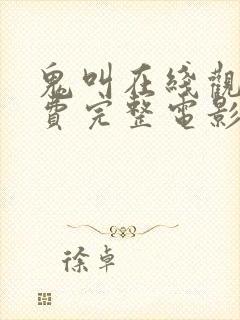 鬼叫在綫觀
費完整電影
徐卓